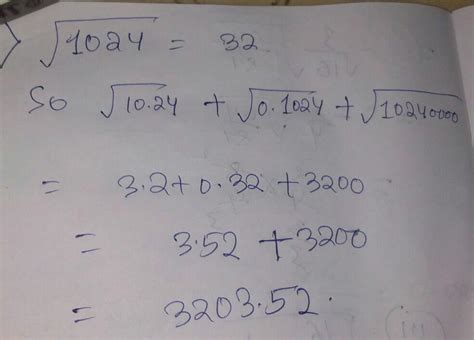 √1024 = 32
So √10.24 + √0.1024 + √10240000
= 3.2+0.32 +3200
= 3.52 +3200
= 3203.52.
(iii)